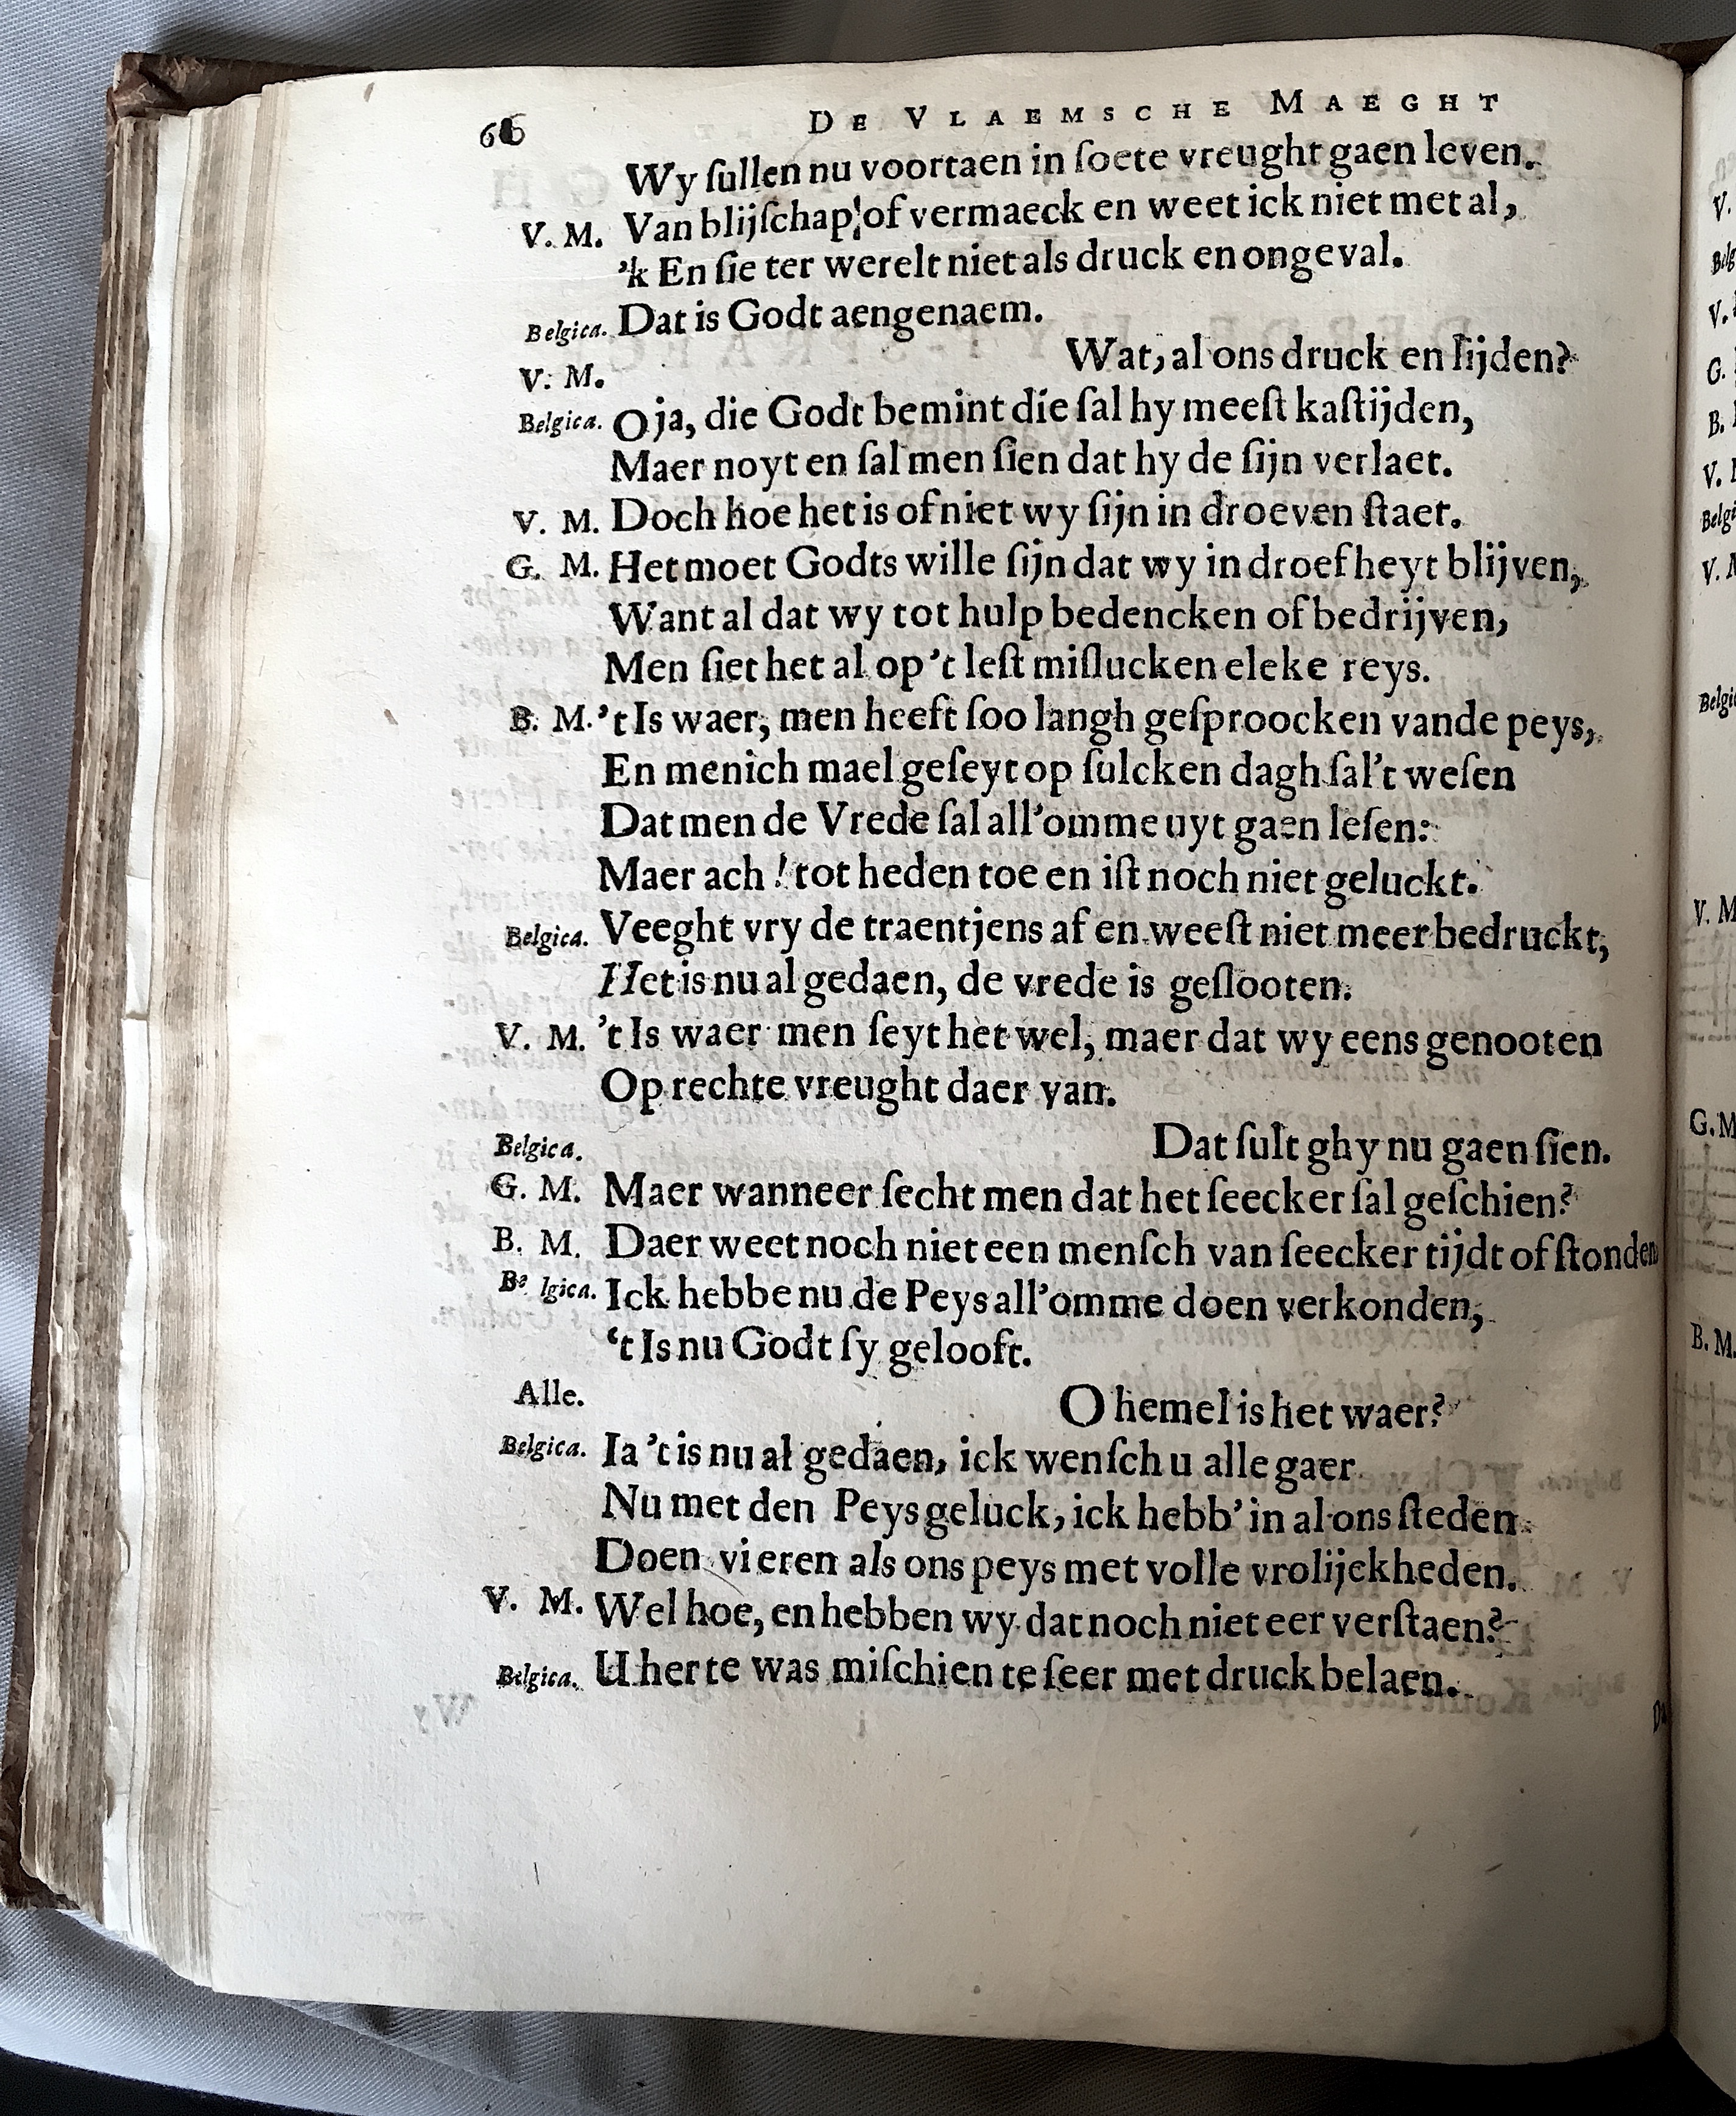 66 DE VLAEMSCHE MAEGHT
Wy ſullen nu voortaen in ſoete vreught gaen leven.
V. M. Van blijſchap of vermaeck en weet ick niet met al,
'k En ſie ter werelt niet als druck en ongeval.
Belgica. Dat is Godt aengenaem.
V. M. Wat, al ons druck en lijden?
Belgica. O ja, die Godt bemint die ſal hy meeſt kaſtijden,
Maer noyt en ſal men ſien dat hy de ſijn verlaet.
V. M. Doch hoe het is of niet wy ſijn in droeven ſtaet.
G. M. Het moet Godts wille ſijn dat wy in droefheyt blijven,
Want al dat wy tot hulp bedencken of bedrijven,
Men ſiet het al op 't leſt miſlucken eleke reys.
B. M. 't Is waer, men heeft ſoo langh geſproocken vande peys,
En menich mael geſeyt op ſulcken dagh ſal't weſen
Dat men de Vrede ſal all'omme uyt gaen leſen:
Maer ach! tot heden toe en iſt noch niet geluckt.
Belgica. Veeght vry de traentjens af en weeſt niet meer bedruckt,
Het is nu al gedaen, de vrede is geſlooten.
V. M. 't Is waer men ſeyt het wel, maer dat wy eens genooten
Op rechte vreught daer van.
Belgica. Dat ſult ghy nu gaen ſien.
G. M. Maer wanneer ſecht men dat het ſeecker ſal geſchien?
B. M. Daer weet noch niet een menſch van ſeecker tijdt of ſtonden
Belgica. Ick hebbe nu de Peys all'omme doen verkonden,
't Is nu Godt ſy gelooft.
Alle. O hemel is het waer?
Belgica. Ia 't is nu al gedaen, ick wenſch u alle gaer
Nu met den Peys geluck, ick hebb' in al ons ſteden
Doen vieren als ons peys met volle vrolijckheden.
V. M. Wel hoe, en hebben wy dat noch niet eer verſtaen?
Belgica. U herte was miſchien te ſeer met druck belaen.
V.
Belg
V.
G.
B.
V.
Belgi
V. M
Belgic
V. M
G. M
B. M.